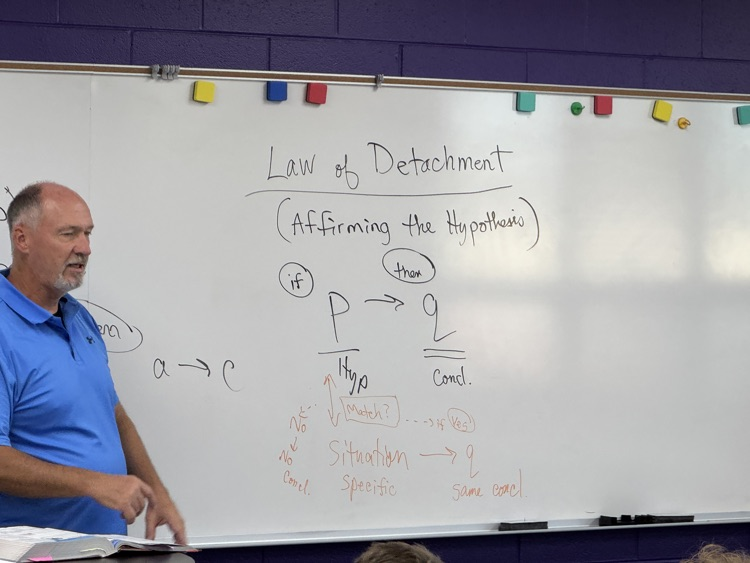 Law of Detachment
(Affirming the Hypothesis)
if then
p → q
Hyp Concl.
a → c
Match? ---> if Yes
No
No Concl.
Situation → q
specific same concl.